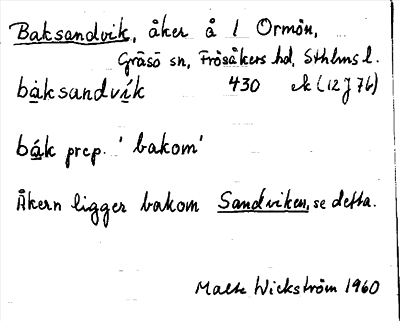 Baksandvik, åker å l Ormön,
Gräsö sn, Frösåkers hd, Sthlms l.
bàksandvík 430 ek (12 J 7b)
bák prep. ' bakom'
Åkern ligger bakom Sandviken, se detta.
Malte Wickström 1960